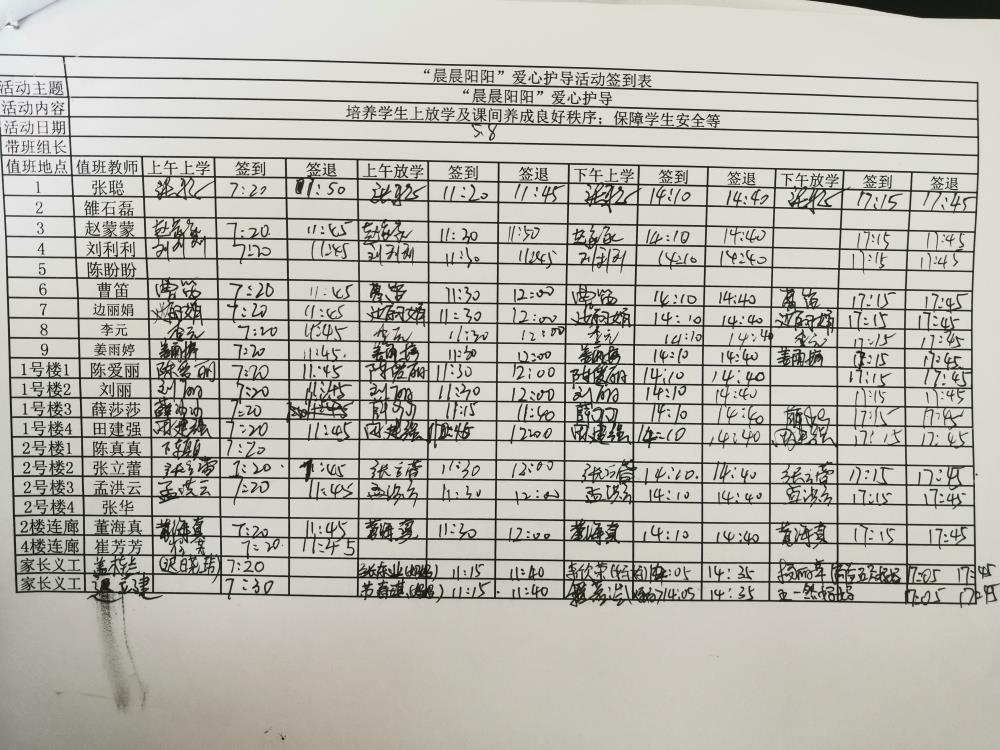 “晨晨阳阳”爱心护导活动签到表
活动主题 “晨晨阳阳”爱心护导
活动内容 培养学生上放学及课间养成良好秩序；保障学生安全等
活动日期 5.8
带班组长
值班地点 值班教师 上午上学 签到 签退 上午放学 签到 签退 下午上学 签到 签退 下午放学 签到 签退
1 张聪 张聪 7:20 11:50 张聪 11:20 11:45 张聪 14:10 14:40 张聪 17:15 17:45
2 雒石磊
3 赵蒙蒙 赵蒙蒙 7:20 11:45 赵蒙蒙 11:30 11:50 赵蒙蒙 14:10 14:40 17:15 17:45
4 刘利利 刘利利 7:20 11:45 刘利利 11:30 11:45 刘利利 14:10 14:40 17:15 17:45
5 陈盼盼
6 曹笛 曹笛 7:20 11:45 曹笛 11:30 12:00 曹笛 14:10 14:40 曹笛 17:15 17:45
7 边丽娟 边丽娟 7:20 11:45 边丽娟 11:30 12:00 边丽娟 14:10 14:40 边丽娟 17:15 17:45
8 李元 李元 7:20 11:45 李元 11:30 12:00 李元 14:10 14:40 李元 17:15 17:45
9 姜雨婷 姜雨婷 7:20 11:45. 姜雨婷 11:30 12:00 姜雨婷 14:10 14:40 姜雨婷 17:15 17:45
1号楼1 陈爱丽 陈爱丽 7:20 11:45 陈爱丽 11:30 12:00 陈爱丽 14:10 14:40 17:15 17:45
1号楼2 刘丽 刘丽 7:20 11:45 刘丽 11:30 12:00 刘丽 14:10 14:40 17:15 17:45
1号楼3 薛莎莎 薛莎莎 7:20 11:45 薛莎莎 11:15 11:40 薛莎莎 14:10 14:40 17:15 17:45
1号楼4 田建强 田建强 7:20 11:45 田建强 12:00 田建强 14:10 14:40 田建强 17:15 17:45
2号楼1 陈真真 陈真真 7:20
2号楼2 张立蕾 张立蕾 7:20. 11:45 张立蕾 11:30 12:00 张立蕾 14:10. 14:40 张立蕾 17:15 17:45
2号楼3 孟洪云 孟洪云 7:20 11:45 孟洪云 11:30 12:00 孟洪云 14:10 14:40 孟洪云 17:15 17:45
2号楼4 张华
2楼连廊 董海真 董海真 7:20 11:45 董海真 11:30 12:00 董海真 14:10 14:40 董海真 17:15 17:45
4楼连廊 崔芳芳 7:20. 11:45
家长义工 7:20 11:15 11:40 14:05 14:35 17:05 17:45
家长义工 7:30 11:15. 11:40 14:05 14:35 17:05 17:45